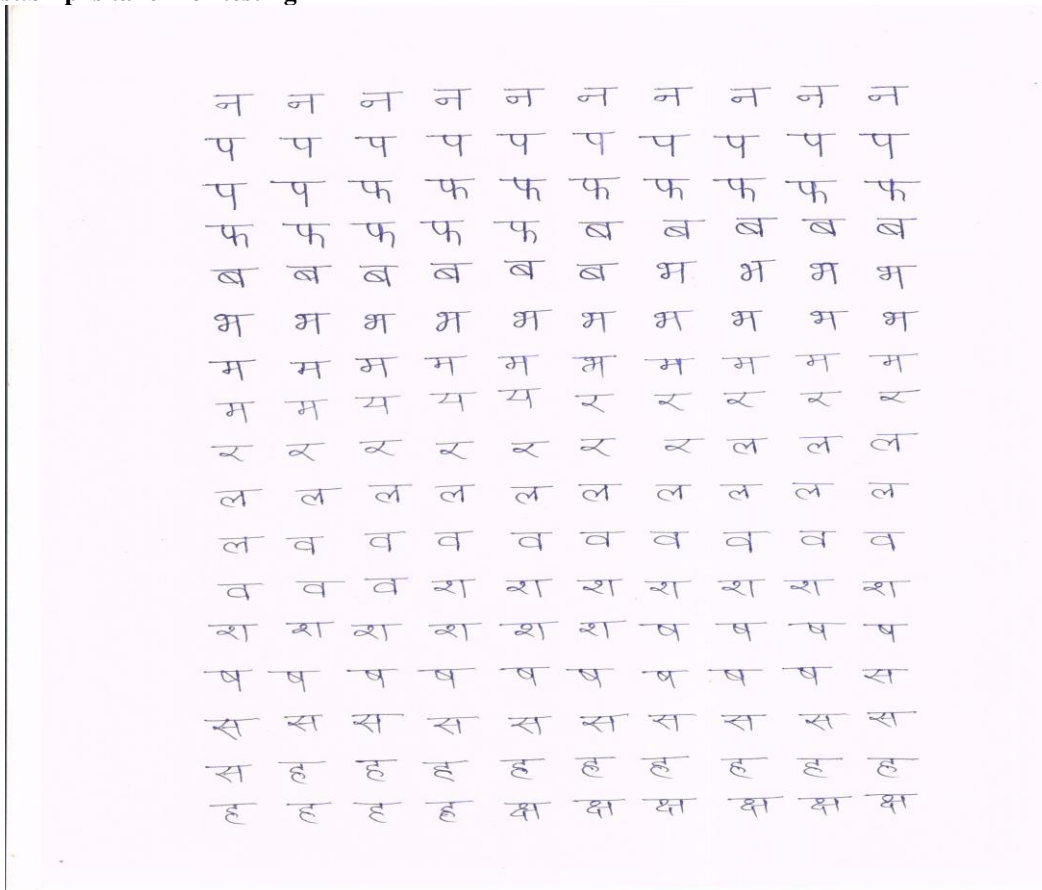 न न न न न न न न न न
प प प प प प प प प प
प प फ फ फ फ फ फ फ फ
फ फ फ फ फ ब ब ब ब ब
ब ब ब ब ब ब भ भ भ भ
भ भ भ भ भ भ भ भ भ भ
म म म म म भ म म म म
म म य य य र र र र र
र र र र र र र ल ल ल
ल ल ल ल ल ल ल ल ल ल
ल व व व व व व व व व
व व व श श श श श श श
श श श श श श ष ष ष ष
ष ष ष ष ष ष ष ष ष स
स स स स स स स स स स
स ह ह ह ह ह ह ह ह ह
ह ह ह ह क्ष क्ष क्ष क्ष क्ष क्ष